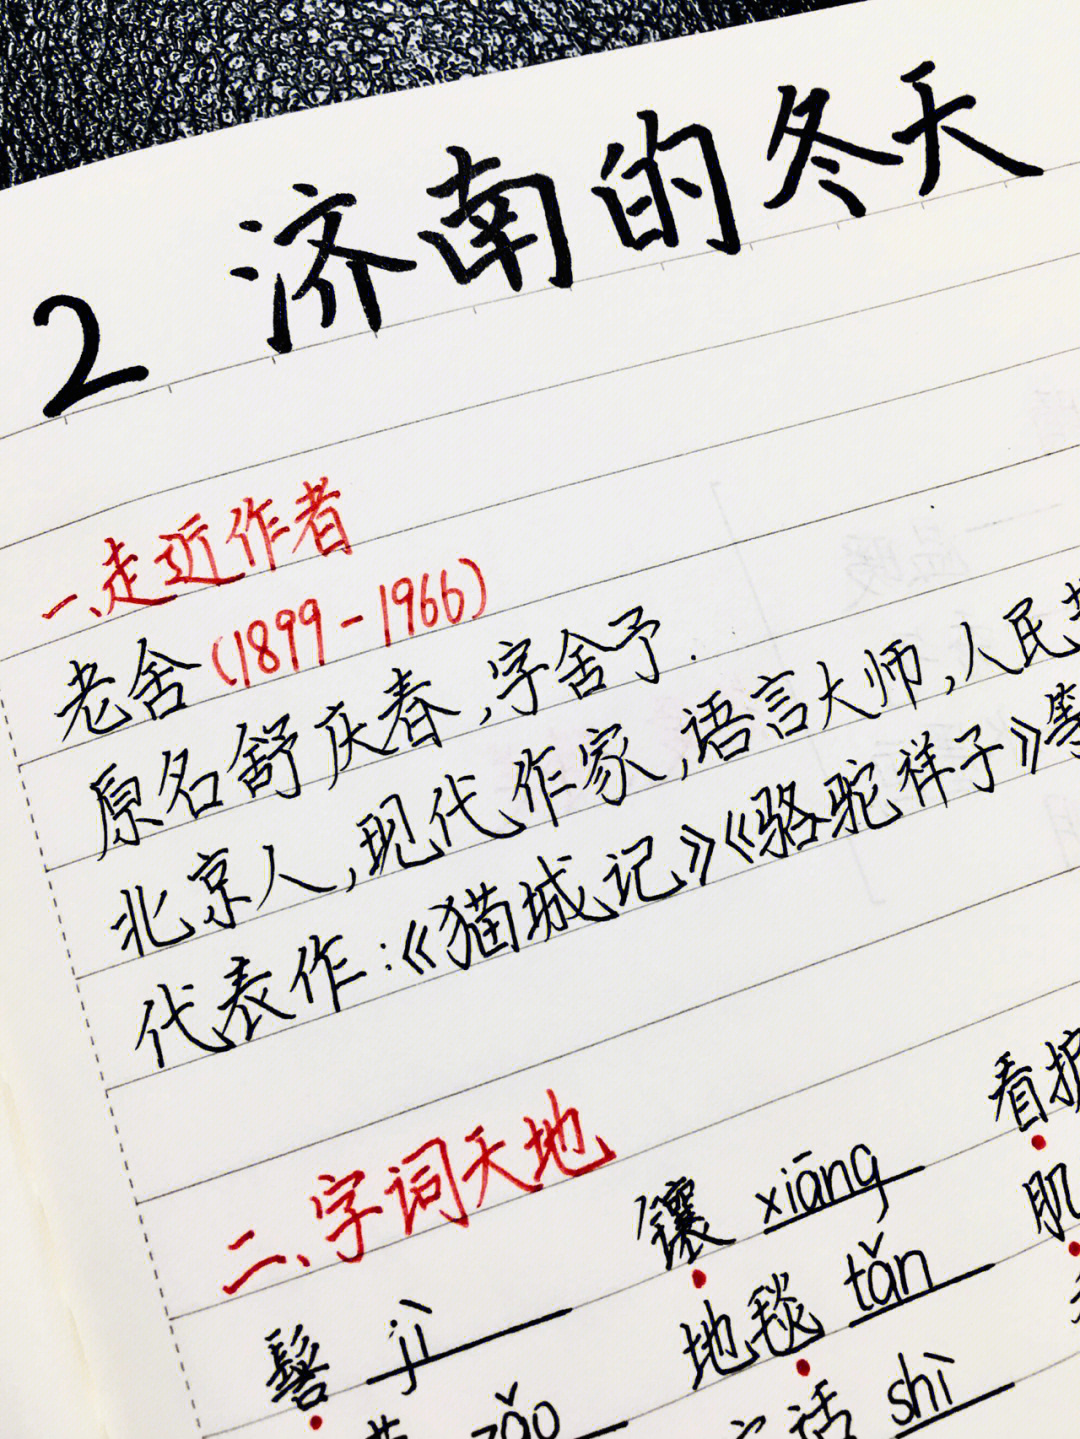 2 济南的冬天
一、走近作者
老舍(1899-1966)
原名舒庆春,字舍予.
北京人,现代作家,语言大师,人民
代表作:《猫城记》《骆驼祥子》等
二、字词天地
髻 jì 镶 xiāng 看护
地毯 tǎn 肌
zǎo shì